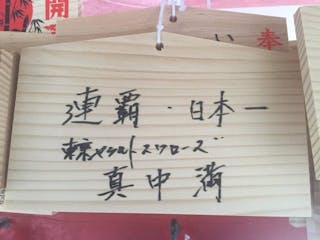 開
い
奉
連覇・日本一
東京ヤクルトスワローズ
真中満